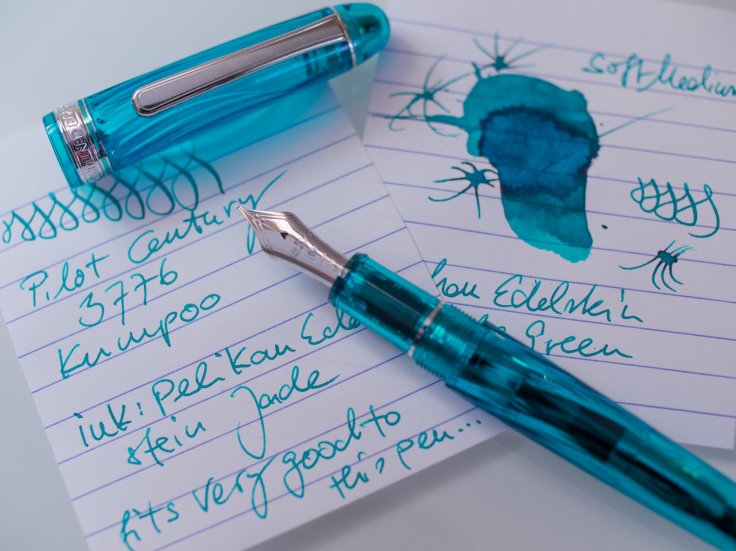 3776 CENTURY
Pilot Century
3776
Kumpoo
ink: Pelikan Ede
stein Jade
fits very good to
this pen...
Soft Medium
Edelstein
Green